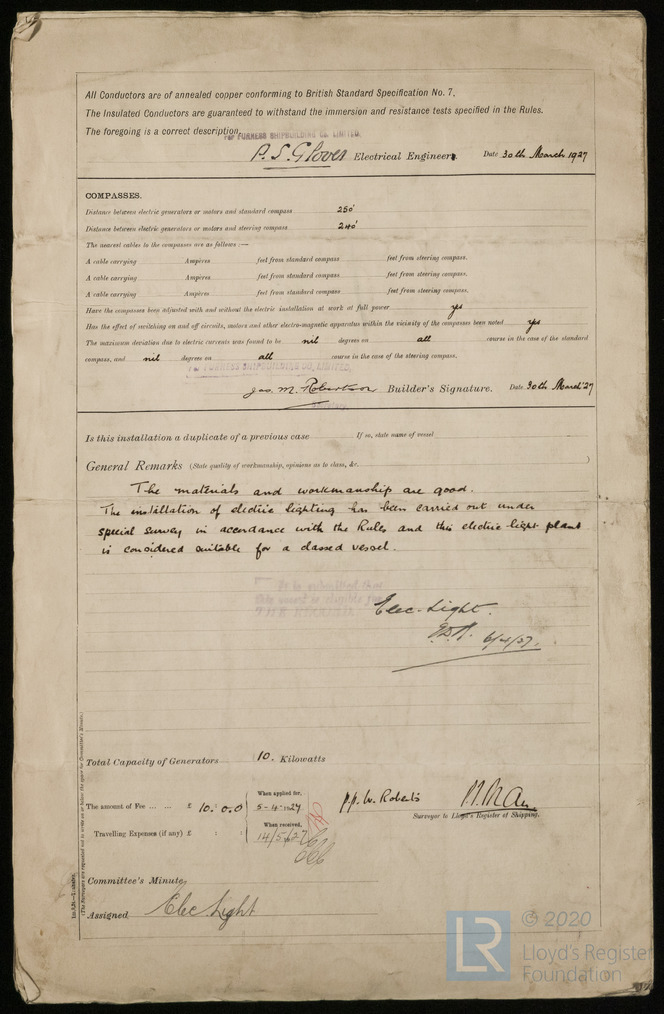 All Conductors are of annealed copper conforming to British Standard Specification No. 7.
The Insulated Conductors are guaranteed to withstand the immersion and resistance tests specified in the Rules.
The foregoing is a correct description.
For FURNESS SHIPBUILDING CO. LIMITED.
P.S. Glover Electrical Engineers. Date 30th March 1927
COMPASSES.
Distance between electric generators or motors and standard compass 250'
Distance between electric generators or motors and steering compass 240'
The nearest cables to the compasses are as follows :—
A cable carrying Ampères feet from standard compass feet from steering compass.
A cable carrying Ampères feet from standard compass feet from steering compass.
A cable carrying Ampères feet from standard compass feet from steering compass.
Have the compasses been adjusted with and without the electric installation at work at full power yes
Has the effect of switching on and off circuits, motors and other electro-magnetic apparatus within the vicinity of the compasses been noted yes
The maximum deviation due to electric currents was found to be nil degrees on all course in the case of the standard
compass, and nil degrees on all course in the case of the steering compass.
FURNESS SHIPBUILDING CO. LIMITED.
Jas. M. Robertson Builder's Signature. Date 30th March '27
Secretary
Is this installation a duplicate of a previous case If so, state name of vessel
General Remarks (State quality of workmanship, opinions as to class, &c. )
The materials and workmanship are good.
The installation of electric lighting has been carried out under
special survey in accordance with the Rules and this electric light plant
is considered suitable for a classed vessel.
It is submitted that
this vessel is eligible for
THE RECORD
Elec. Light.
6/4/27.
Total Capacity of Generators 10. Kilowatts
The amount of Fee ... ... £ 10 : 0.0
When applied for,
5-4-1927
Travelling Expenses (if any) £ : :
When received,
14/5/1927
p.p. W. Roberts
Surveyor to Lloyd's Register of Shipping.
Committee's Minute
Assigned Elec Light
(The Surveyors are requested not to write on or below the space for Committee's Minute.)
© 2020
LR
Lloyd's Register
Foundation